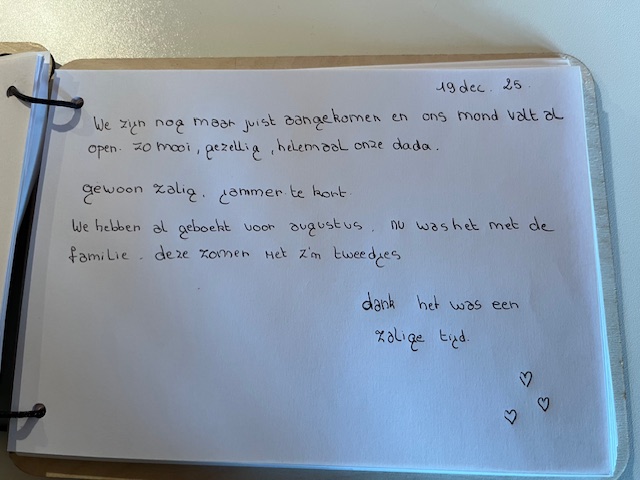 19 dec. 25.
We zijn nog maar juist aangekomen en ons mond valt al
open. zo mooi, gezellig, helemaal onze dada.
gewoon zalig. jammer te kort.
We hebben al geboekt voor augustus. nu was het met de
familie. deze zomer met z'n tweedjes
dank het was een
zalige tijd.